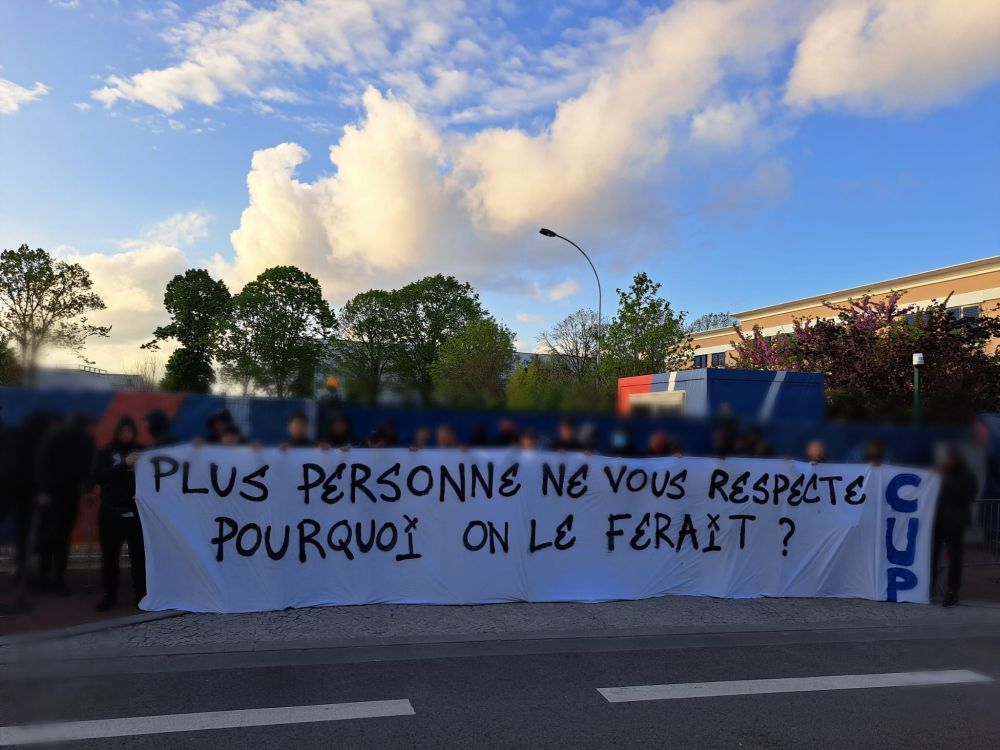 PLUS PERSONNE NE VOUS RESPECTE
POURQUOI ON LE FERAIT ?
CUP